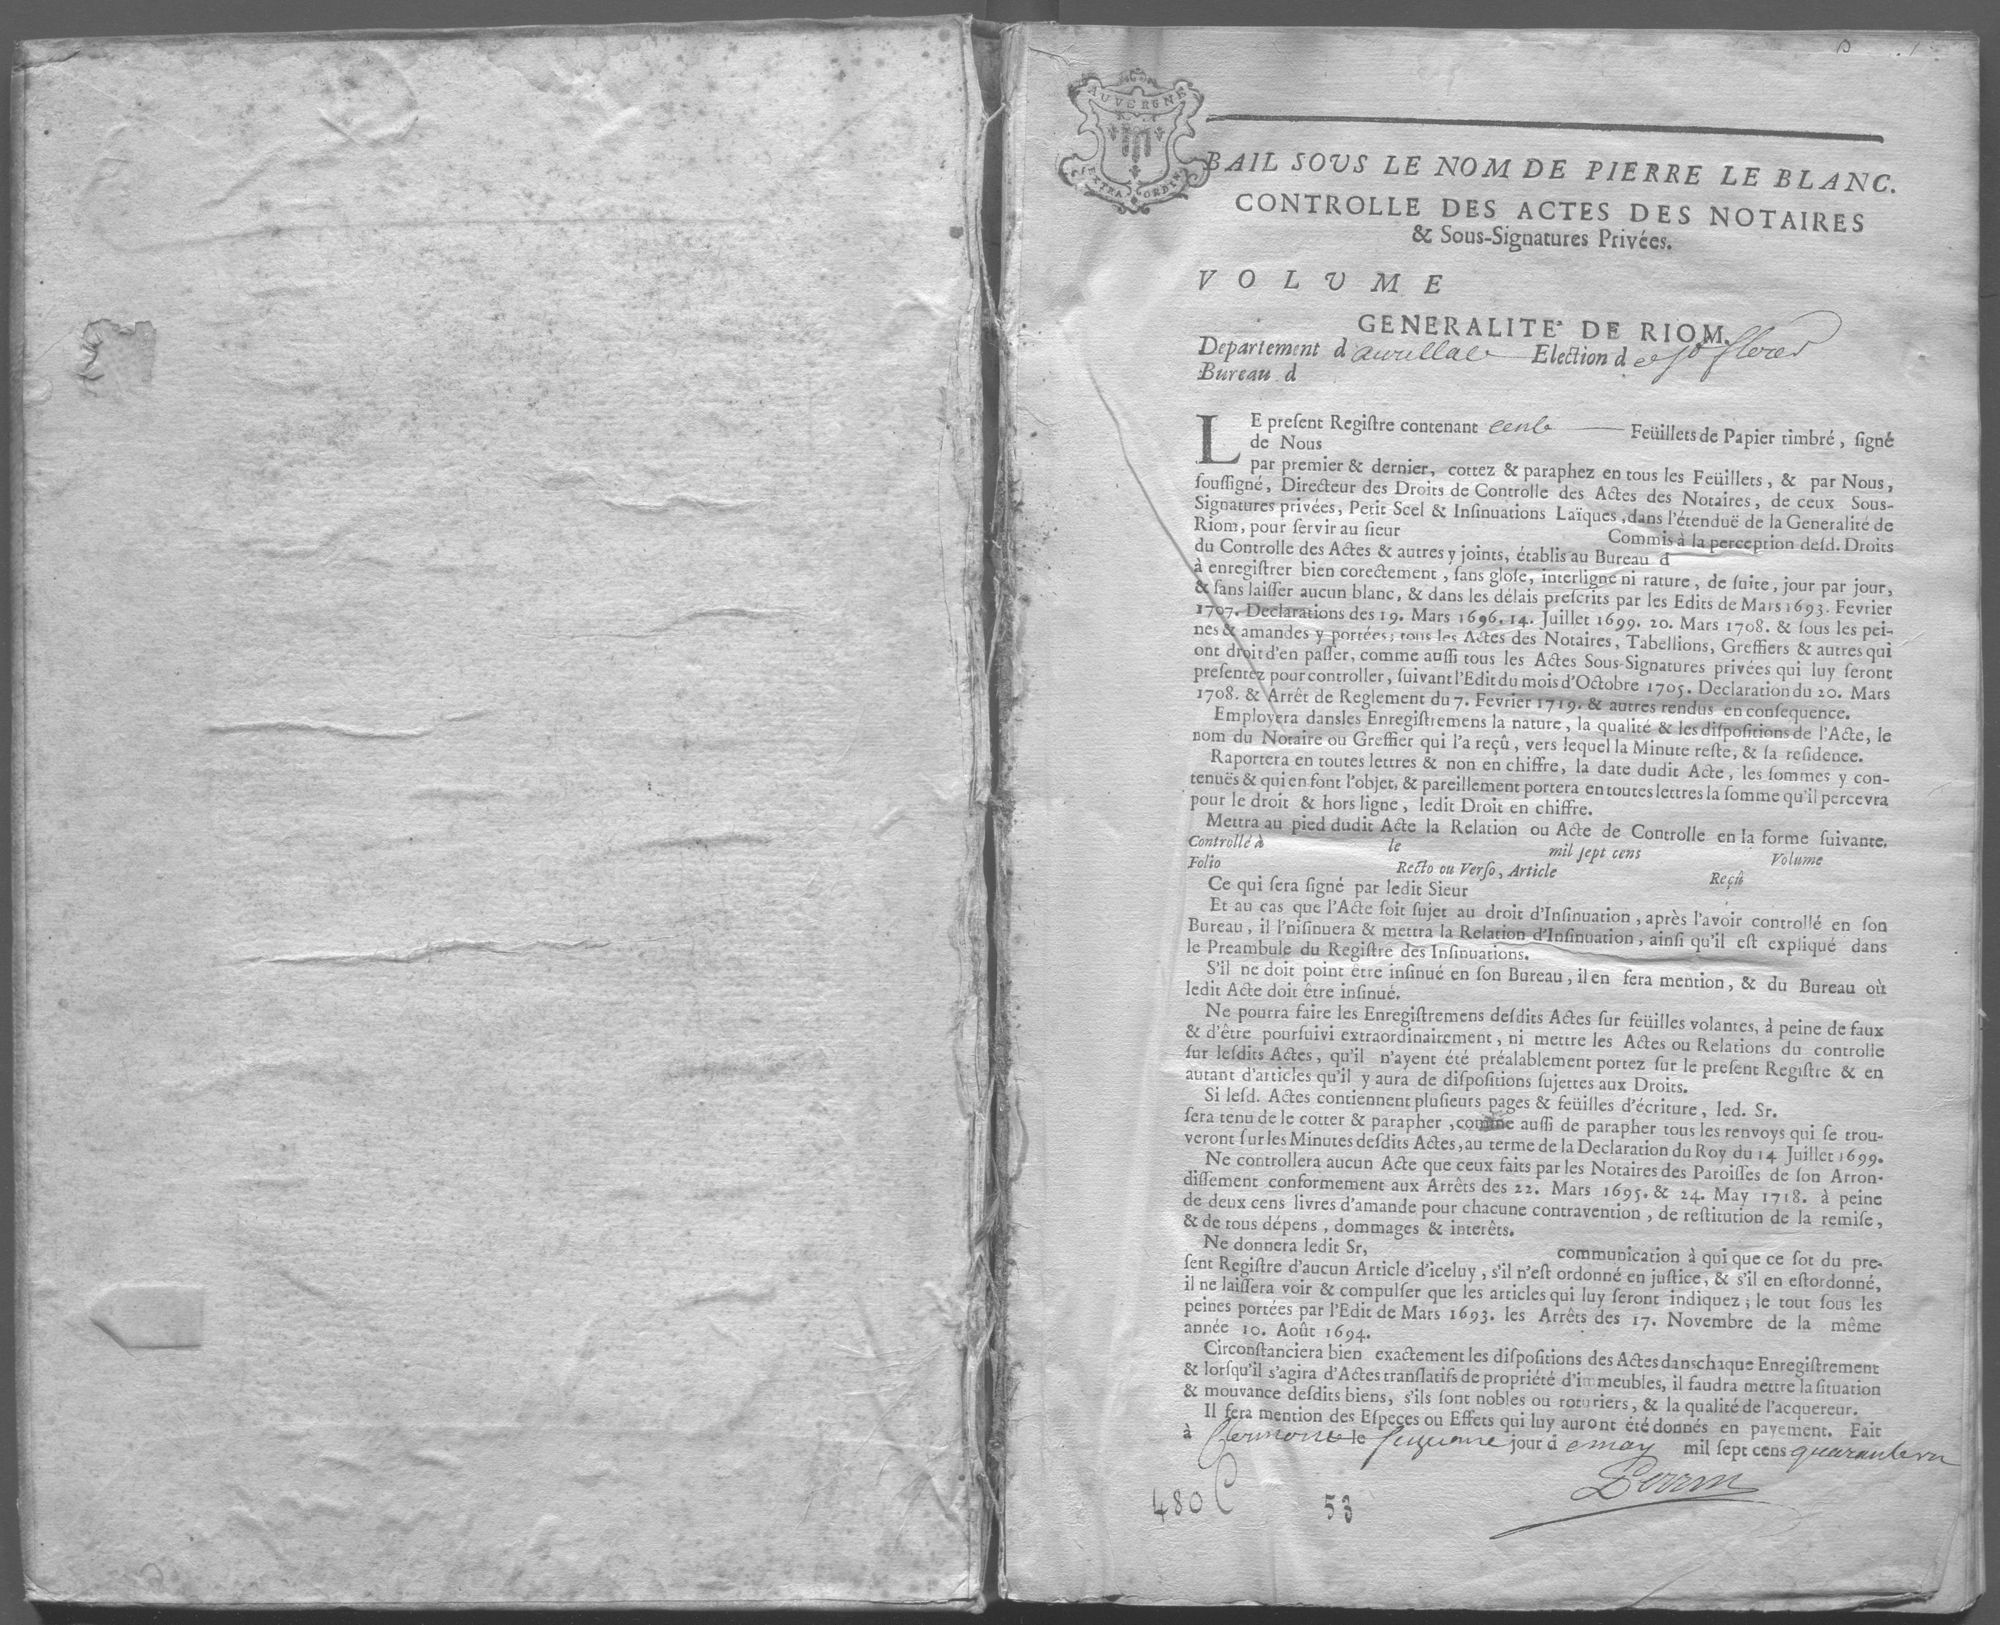 AUVERGNE
EXTRA ORDIN
BAIL SOUS LE NOM DE PIERRE LE BLANC.
CONTROLLE DES ACTES DES NOTAIRES
& Sous-Signatures Privées.
VOLUME
GENERALITE' DE RIOM.
Departement d'aurillac Election d est flour
Bureau d
LE preſent Regiſtre contenant cent Feüillets de Papier timbré, ſigné
de Nous
par premier & dernier, cottez & paraphez en tous les Feüillets, & par Nous,
ſouſſigné, Directeur des Droits de Controlle des Actes des Notaires, de ceux Sous-
Signatures privées, Petit Scel & Inſinuations Laïques, dans l'étenduë de la Generalité de
Riom, pour ſervir au ſieur Commis à la perception deſd. Droits
du Controlle des Actes & autres y joints, établis au Bureau d
à enregiſtrer bien corectement, ſans gloſe, interligne ni rature, de ſuite, jour par jour,
& ſans laiſſer aucun blanc, & dans les délais preſcrits par les Edits de Mars 1693. Fevrier
1707. Declarations des 19. Mars 1696. 14. Juillet 1699. 20. Mars 1708. & ſous les pei-
nes & amandes y portées; tous les Actes des Notaires, Tabellions, Greffiers & autres qui
ont droit d'en paſſer, comme auſſi tous les Actes Sous-Signatures privées qui luy ſeront
preſentez pour controller, ſuivant l'Edit du mois d'Octobre 1705. Declaration du 20. Mars
1708. & Arrêt de Reglement du 7. Fevrier 1719. & autres rendus en conſequence.
Employera dansles Enregiſtremens la nature, la qualité & les diſpoſitions de l'Acte, le
nom du Notaire ou Greffier qui l'a reçû, vers lequel la Minute reſte, & ſa reſidence.
Raportera en toutes lettres & non en chiffre, la date dudit Acte, les ſommes y con-
tenuës & qui en font l'objet, & pareillement portera en toutes lettres la ſomme qu'il percevra
pour le droit & hors ligne, ledit Droit en chiffre.
Mettra au pied dudit Acte la Relation ou Acte de Controlle en la forme ſuivante.
Controllé à le mil ſept cens Volume
Folio Recto ou Verſo, Article Reçû
Ce qui ſera ſigné par ledit Sieur
Et au cas que l'Acte ſoit ſujet au droit d'Inſinuation, après l'avoir controllé en ſon
Bureau, il l'niſinuera & mettra la Relation d'Inſinuation, ainſi qu'il eſt expliqué dans
le Preambule du Regiſtre des Inſinuations.
S'il ne doit point être inſinué en ſon Bureau, il en ſera mention, & du Bureau où
ledit Acte doit être inſinué.
Ne pourra faire les Enregiſtremens deſdits Actes ſur feüilles volantes, à peine de faux
& d'être pourſuivi extraordinairement, ni mettre les Actes ou Relations du controlle
ſur leſdits Actes, qu'il n'ayent été préalablement portez ſur le preſent Regiſtre & en
autant d'articles qu'il y aura de diſpoſitions ſujettes aux Droits.
Si leſd. Actes contiennent pluſieurs pages & feüilles d'écriture, led. Sr.
ſera tenu de le cotter & parapher, comme auſſi de parapher tous les renvoys qui ſe trou-
veront ſur les Minutes deſdits Actes, au terme de la Declaration du Roy du 14 Juillet 1699.
Ne controllera aucun Acte que ceux faits par les Notaires des Paroiſſes de ſon Arron-
diſſement conformement aux Arrêts des 22. Mars 1695. & 24. May 1718. à peine
de deux cens livres d'amande pour chacune contravention, de reſtitution de la remiſe,
& de tous dépens, dommages & interêts.
Ne donnera ledit Sr, communication à qui que ce ſot du pre-
ſent Regiſtre d'aucun Article d'iceluy, s'il n'eſt ordonné en juſtice, & s'il en eſtordonné,
il ne laiſſera voir & compulſer que les articles qui luy ſeront indiquez; le tout ſous les
peines portées par l'Edit de Mars 1693. les Arrêts des 17. Novembre de la même
année 10. Août 1694.
Circonſtanciera bien exactement les diſpoſitions des Actes danschaque Enregiſtrement
& lorſqu'il s'agira d'Actes tranſlatifs de propriété d'immeubles, il faudra mettre la ſituation
& mouvance deſdits biens, s'ils ſont nobles ou roturiers, & la qualité de l'acquereur.
Il ſera mention des Eſpeces ou Effets qui luy auront été donnés en payement. Fait
à Clermont le jour d e may mil ſept cens quarante un
Perrin
480 C 53